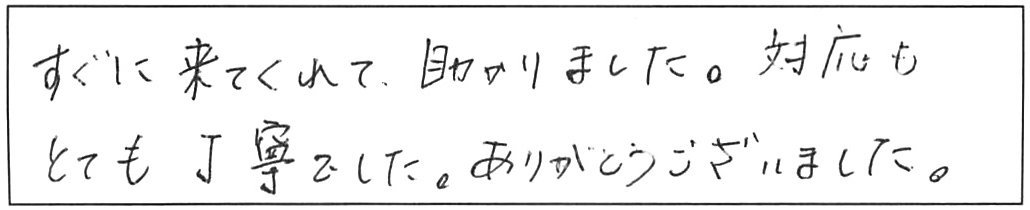 すぐに来てくれて、助かりました。対応も
とても丁寧でした。ありがとうございました。